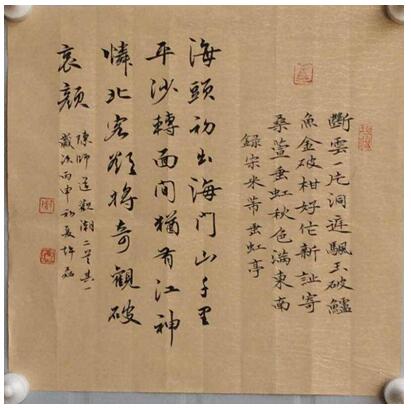 斷雲一片洞庭颿玉破鱸
魚金破柑好作新詩寄
桑苧垂虹秋色滿東南
錄宋米芾垂虹亭
海頭初出海門山千里
平沙轉面間猶有江神
憐北客欲將奇觀破
衰顏
陳師道觀潮二首其一
歲次丙申初夏許